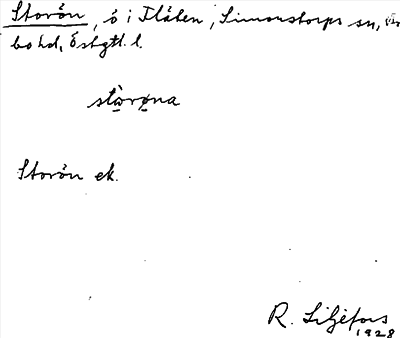 Storön, ö i Flåten, Simonstorps sn,
bo hd, Östgtl. l.
stòrøna
Storön ek.
R. Liljefors
1928